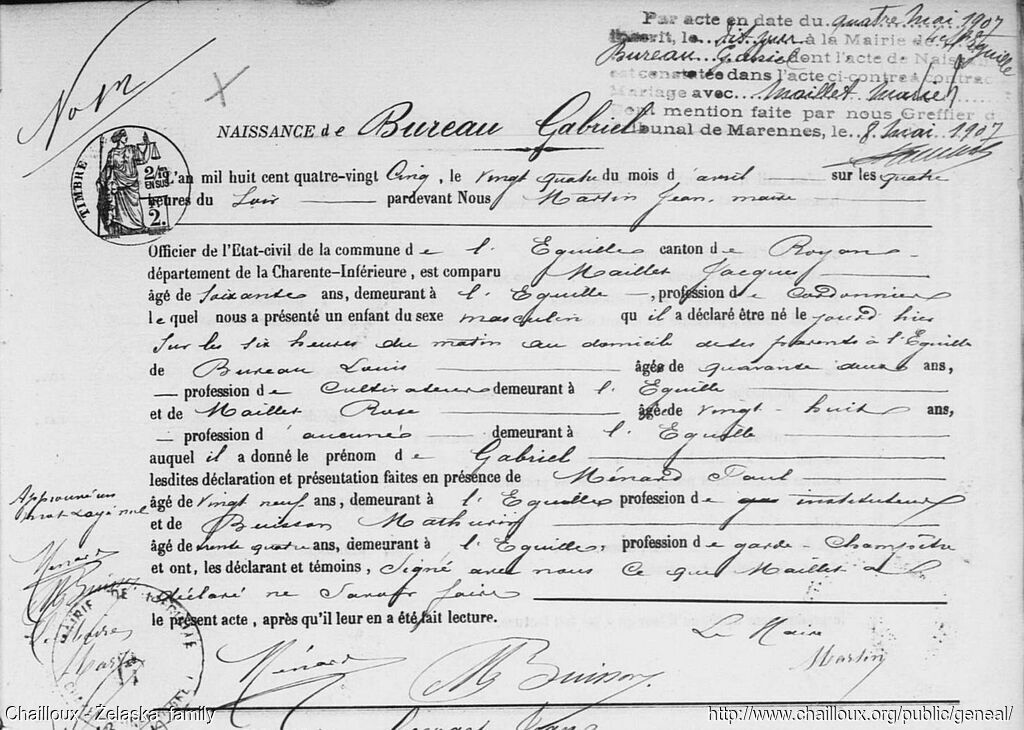 Par acte en date du quatre mai 1907
inscrit, le dit jour à la Mairie de l'Eguille
Bureau Gabriel dont l'acte de Nais
est constatée dans l'acte ci-contre a contrac
Mariage avec Maillet Marie
Dont mention faite par nous Greffier d
Tribunal de Marennes, le 8 mai 1907
Nom
NAISSANCE de Bureau Gabriel
TIMBRE
2/10 EN SUS
2.
L'an mil huit cent quatre-vingt Cinq, le vingt quatre du mois d'avril sur les quatre
heures du Soir pardevant Nous Martin Jean, maire
Officier de l'Etat-civil de la commune de l'Eguille canton de Royan
département de la Charente-Inférieure, est comparu Maillet Jacques
âgé de soixante ans, demeurant à l'Eguille, profession de cordonnier
lequel nous a présenté un enfant du sexe masculin qu'il a déclaré être né le jourd'hier
sur les six heures du matin au domicile de ses parents à l'Eguille
de Bureau Louis âgés de quarante deux ans,
profession de Cultivateur demeurant à l'Eguille
et de Maillet Rose âgée de vingt-huit ans,
profession d'aucune demeurant à l'Eguille
auquel il a donné le prénom de Gabriel
lesdites déclaration et présentation faites en présence de Ménard Paul
âgé de vingt neuf ans, demeurant à l'Eguille profession de instituteur
et de Buisson Mathurin
âgé de trente quatre ans, demeurant à l'Eguille, profession de garde-Champêtre
et ont, les déclarant et témoins, signé avec nous Ce que Maillet a
déclaré ne Savoir faire
le présent acte, après qu'il leur en a été fait lecture.
Approuvé un
mot rayé nul
Ménard
M Buisson
Le Maire
Martin
MAIRIE DE L'EGUILLE
Ménard
M Buisson
Le Maire
Martin
Chailloux - Zelaska family
http://www.chailloux.org/public/geneal/